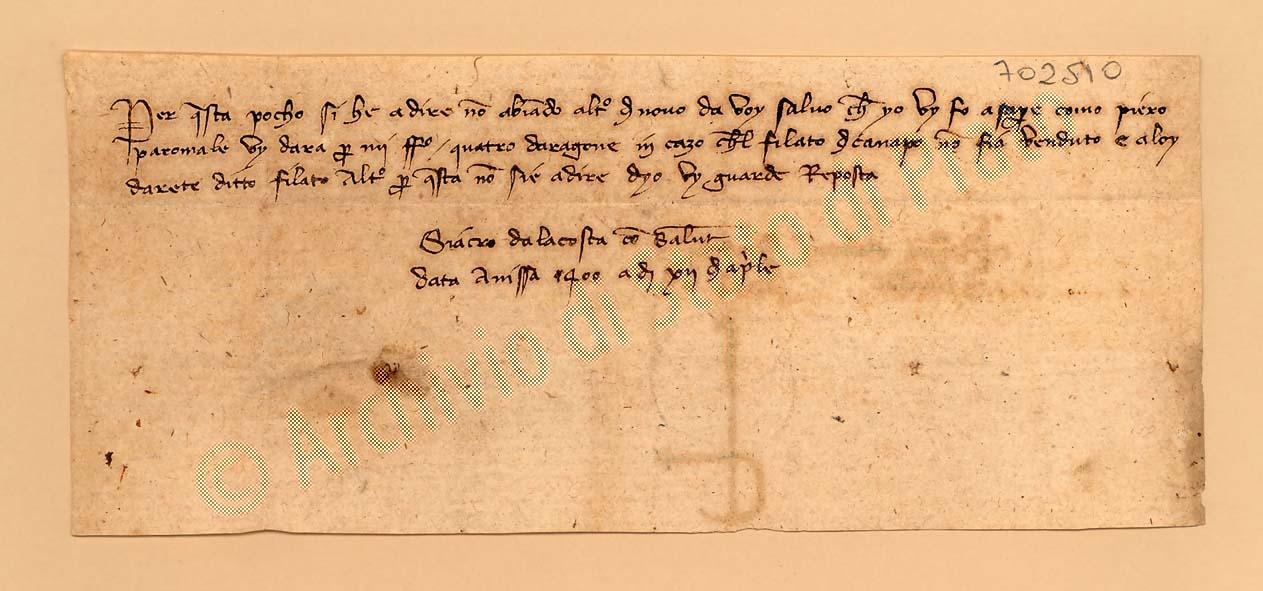 702510
Per q̄sta pocho si he a dire nō abiādo alt° d novo da voy salvo ch̄ yo vy fo a sap̱e como piero
paromale vy dara ꝑ mii ffⁱ / quatro daragone in cazo ch̄l filato d canape nō sia venduto e a loy
darete ditto filato Alt° ꝑ q̄sta nō si é a dire dyo vy guarde Reposta
dalacosta cō Salut̄
data Anissa 1400 a dì xii d ap̱le
© Archivio di Stato di Prato